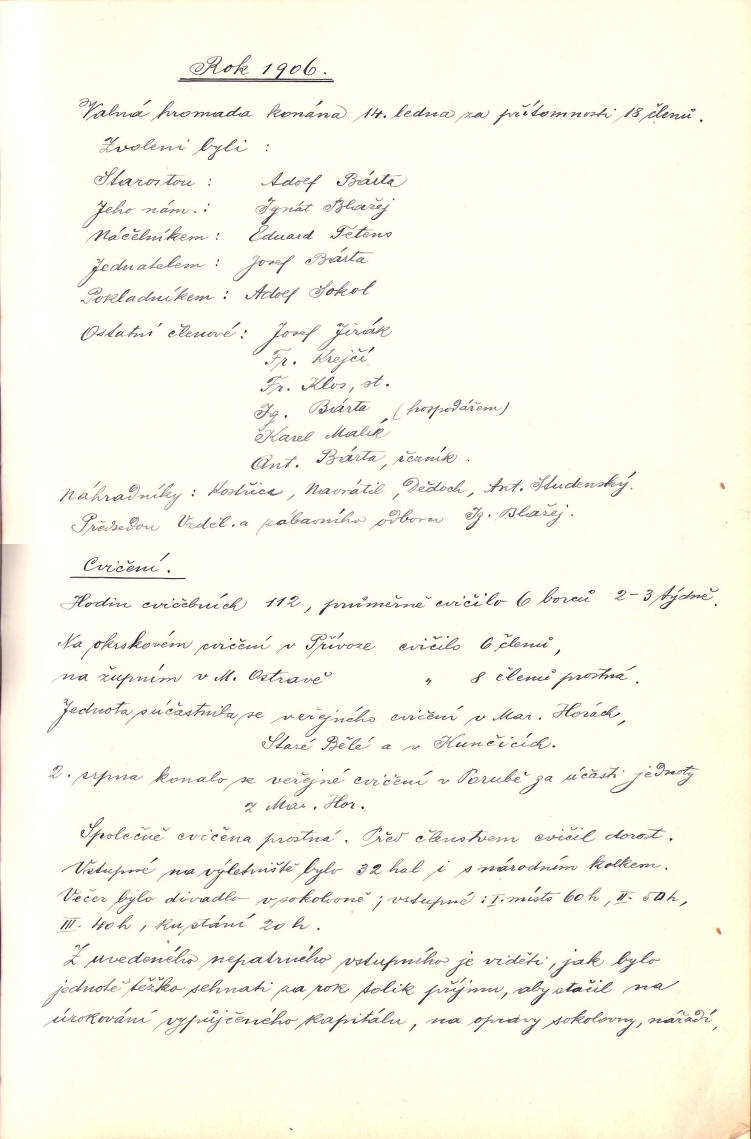 Rok 1906.
Valná hromada konána 14. ledna za přítomnosti 18 členů.
Zvoleni byli :
Starostou : Adolf Bárta
Jeho nám. : Ignát Blařej
Náčelníkem : Eduard Tetens
Jednatelem : Josef Bárta
Pokladníkem : Adolf Sokol
Ostatní členové : Josef Jirák
Fr. Krejčí
Fr. Klos, st.
Ig. Bárta (hospodářem)
Karel Malík
Ant. Bárta, řezník.
Náhradníky : Kostřica, Navrátil, Dědoch, Ant. Studenský.
Předsedou Vzděl. a zábavního odboru Ig. Blařej.
Cvičení.
Hodin cvičebních 112, průměrně cvičilo 6 borců 2-3 týdně.
Na okrskovém cvičení v Přívoze cvičilo 6 členů,
na župním v M. Ostravě " 8 členů prostná.
Jednota súčastnila se veřejného cvičení v Mar. Horách,
Staré Bělé a v Kunčicích.
2. srpna konalo se veřejné cvičení v Porubě za účasti jednoty
z Mar. Hor.
Společně cvičena prostná. Před členstvem cvičil dorost.
Vstupné na výletniště bylo 32 hal i s národním kolkem.
Večer bylo divadlo v sokolovně ; vstupné : I. místo 60 h, II. 50 h,
III. 40 h, ku stání 20 h.
Z uvedeného nepatrného vstupného je viděti, jak bylo
jednotě těžko sehnati za rok tolik příjmu, aby stačil na
úrokování vypůjčeného kapitálu, na opravy sokolovny, nářadí,